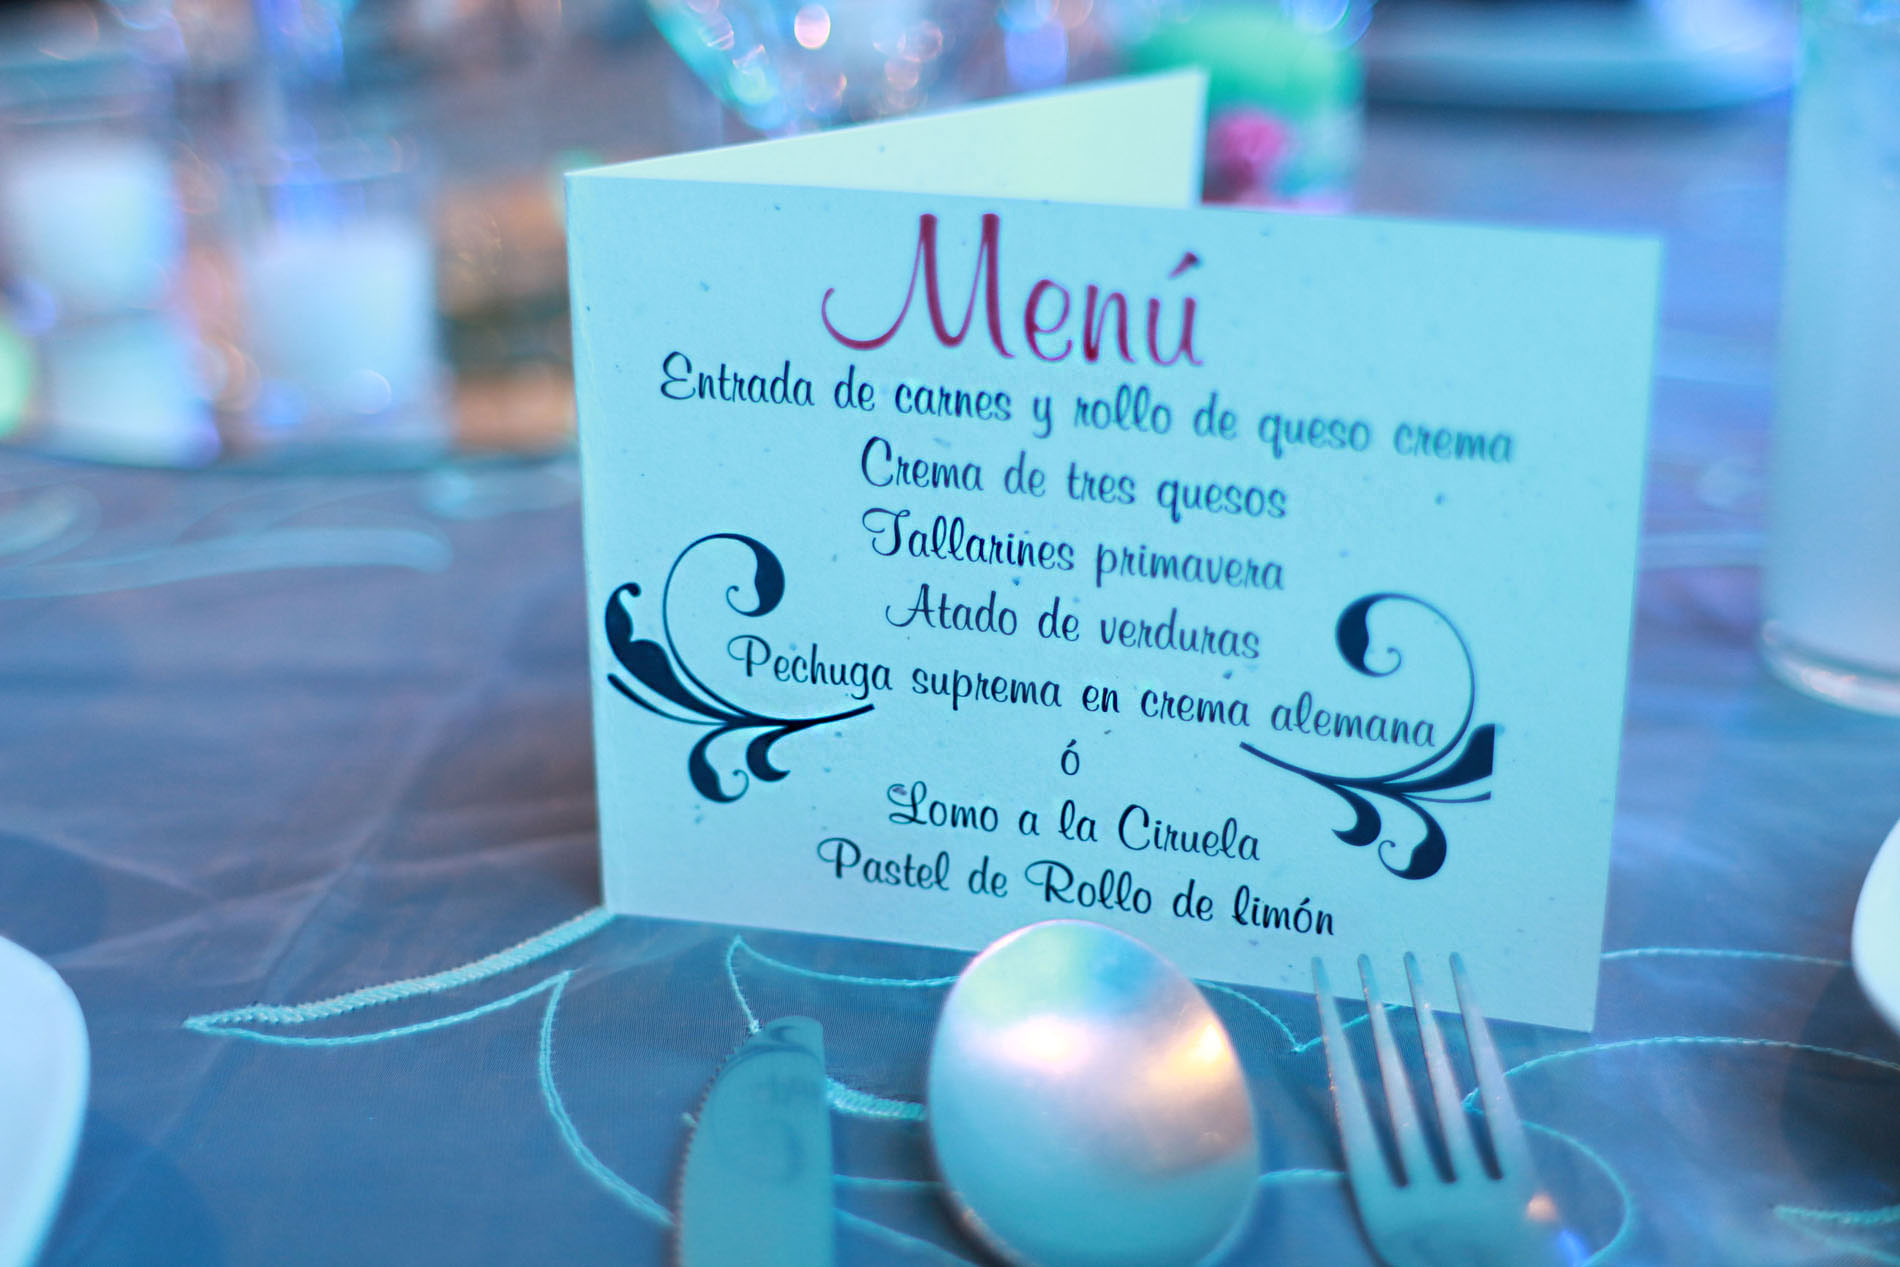 Menú
Entrada de carnes y rollo de queso crema
Crema de tres quesos
Tallarines primavera
Atado de verduras
Pechuga suprema en crema alemana
ó
Lomo a la Ciruela
Pastel de Rollo de limón